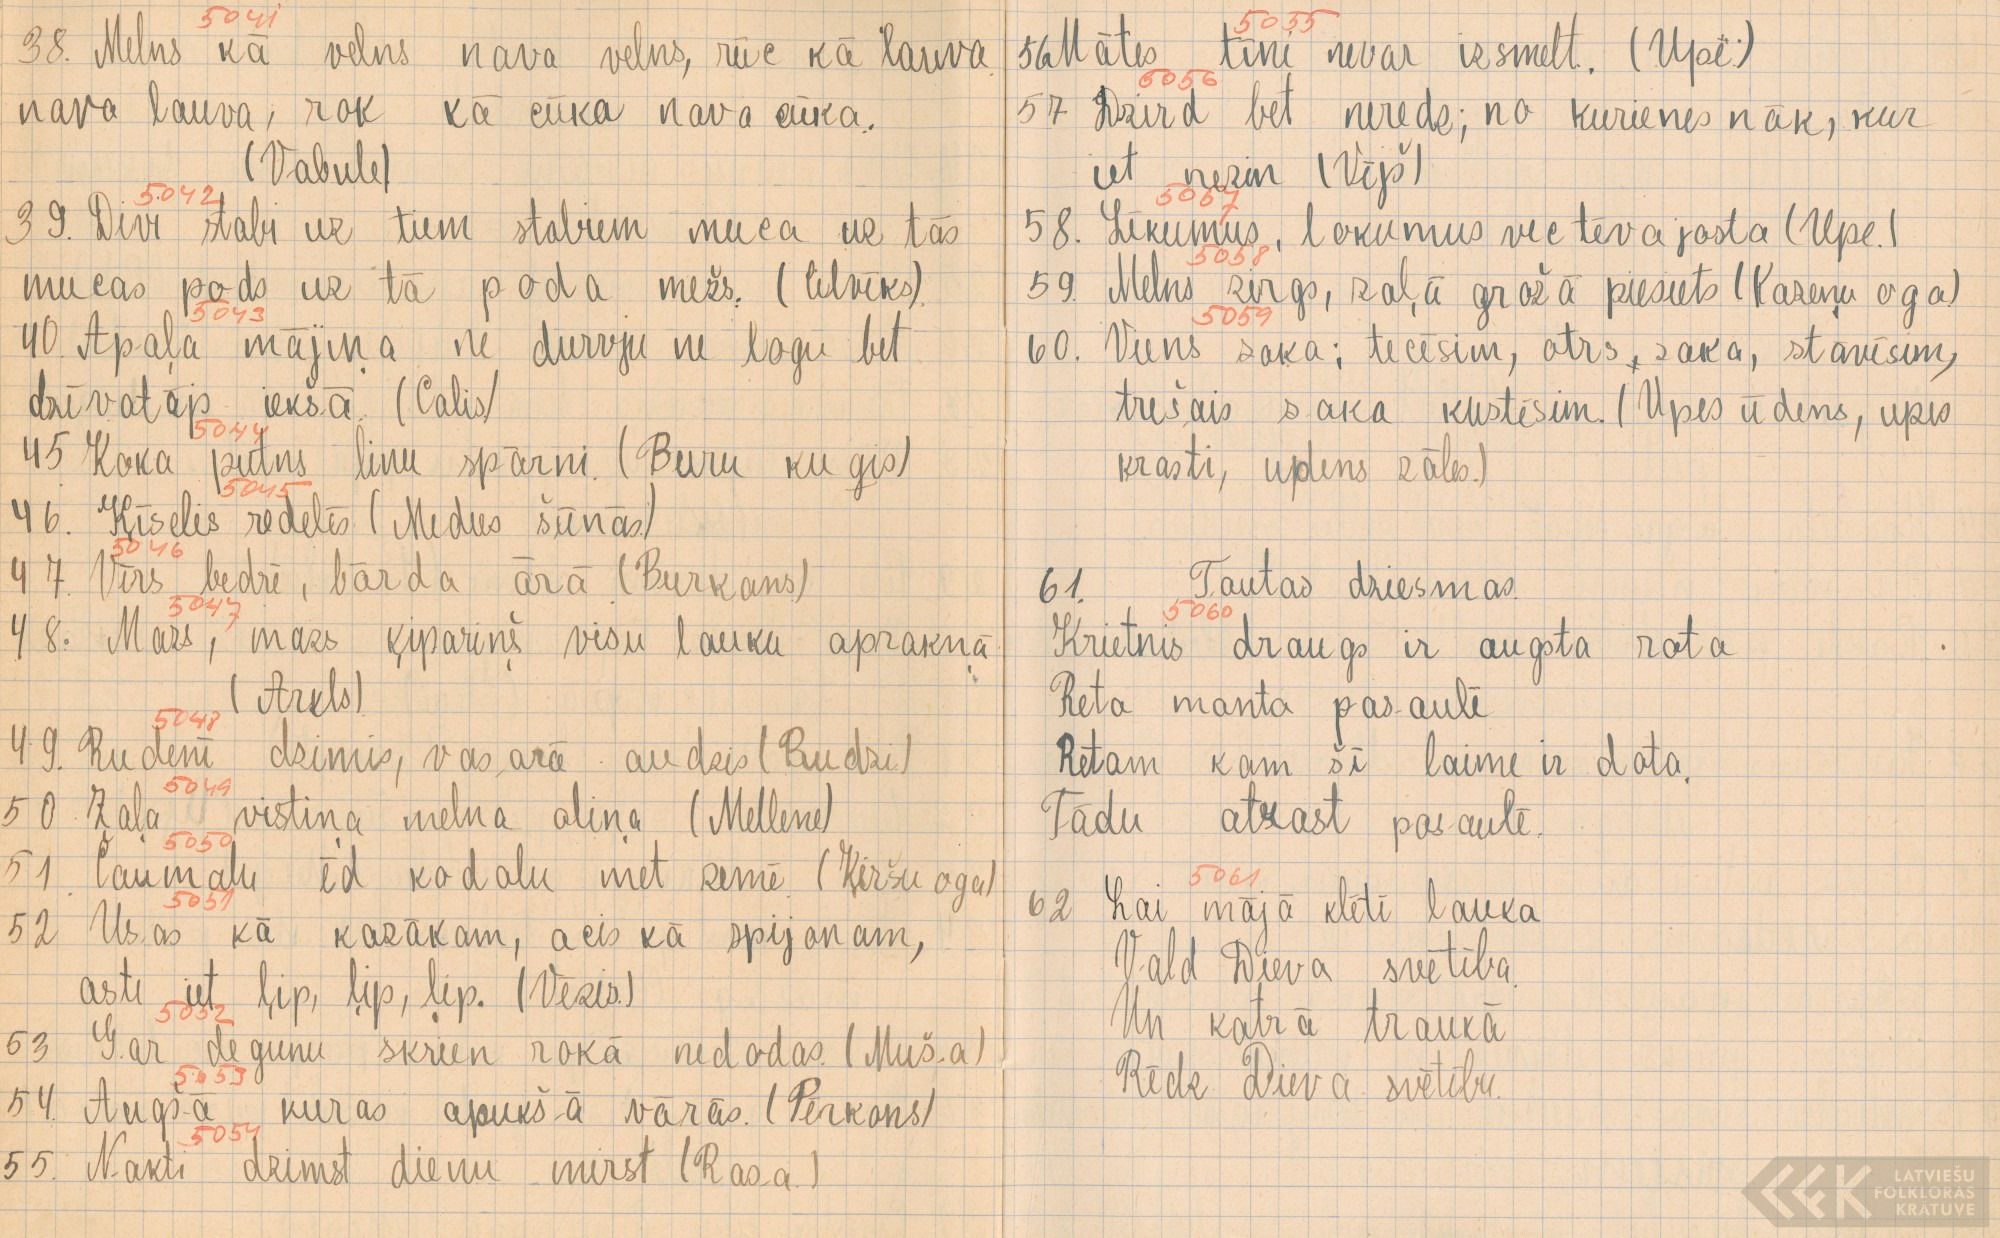 5041
38. Melns kā velns nava velns, rūc kā lauva
nava lauva, rok kā cūka nava cūka.
(Vabule)
5042
39. Divi stabi uz tiem stabiem muca uz tās
mucas pods uz tā poda mežs. (Cilvēks)
5043
40. Apaļa mājiņa ne durvju ne logu bet
dzīvotājs iekšā. (Calis)
5044
45 Koka putns linu spārni. (Buru kugis)
5045
46. Ķīselis redelēs (Medus šūnās)
5046
47. Vīrs bedrē, bārda ārā (Burkans)
5047
48. Mazs, mazs ķipariņš visu lauku apraknā
(Arkls)
5048
49. Rudenī dzimis, vasarā audzis (Rudzi)
5049
50 Zaļa vistiņa melna oliņa (Mellene)
5050
51. Čaumalu ēd kodolu met zemē (Ķiršu oga)
5051
52 Usas kā kazākam, acis kā spijonam,
aste iet ļip, ļip, ļip. (Vēzis)
5052
53 Gar degunu skrien rokā nedodas. (Muša)
5053
54. Augšā kuras apukšā vārās. (Pērkons)
5054
55. Nakti dzimst dienu mirst (Rasa)
5055
56 Mātes tīni nevar izsmelt. (Upē)
5056
57 Dzird bet neredz; no kurienes nāk, kur
iet nezin (Vējš)
5057
58. Līkumus, lokumus vectēva josta (Upe.)
5058
59. Melns zirgs, zaļā grožā piesiets (Kazeņu oga)
5059
60. Viens saka; tecēsim, otrs, saka, stāvēsim,
trešais saka kustēsim. (Upes ūdens, upes
krasti, updens zāles.)
61. Tautas dziesmas.
5060
Krietnis draugs ir augsta rota
Reta manta pasaulē
Retam kam šī laime ir dota.
Tādu atrast pasaulē.
5061
62 Lai mājā klētī lauka
Vald Dieva svētība.
Un katrā traukā
Rēdz Dieva svētību.
LATVIEŠU
FOLKLORAS
KRĀTUVE